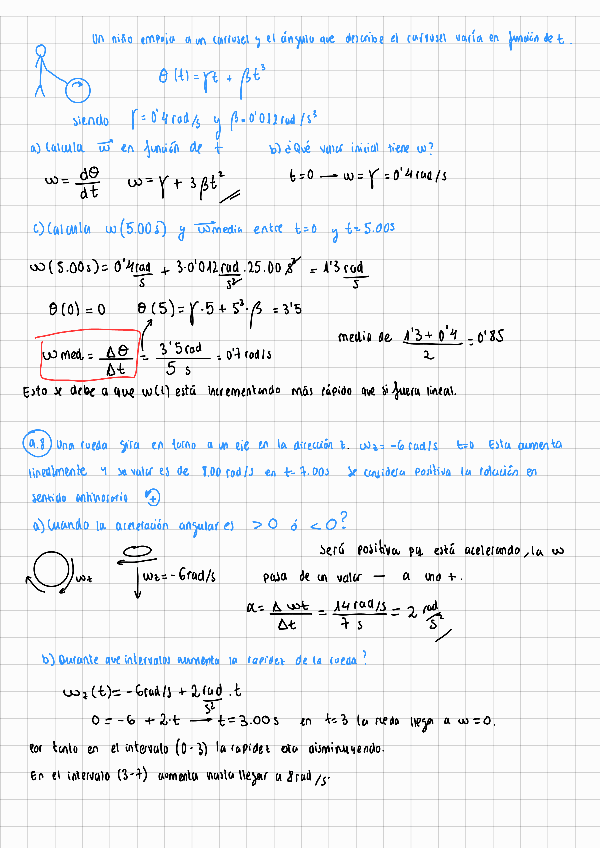 Un niño empuja a un carrusel y el ángulo que describe el carrusel varía en función de t.
θ(t) = γt + βt³
siendo γ = 0'4 rad/s y β = 0'012 rad/s³
a) Calcula ω⃗ en función de t b) ¿Qué valor inicial tiene ω?
ω = dθ/dt ω = γ + 3βt² t=0 → ω = γ = 0'4 rad/s
c) Calcula ω(5.00s) y ω⃗media entre t=0 y t=5.00s
ω(5.00s) = 0'4 rad/s + 3·0'012 rad/s³ · 25.00 s² = 1'3 rad/s
θ(0) = 0 θ(5) = γ·5 + 5³·β = 3'5
media de (1'3 + 0'4)/2 = 0'85
ω med = Δθ/Δt = 3'5 rad/5 s = 0'7 rad/s
Esto se debe a que ω(t) está incrementando más rápido que si fuera lineal.
9.8 Una rueda gira en torno a un eje en la dirección z. ωz = -6 rad/s t=0 Esta aumenta
linealmente y su valor es de 8.00 rad/s en t=7.00s Se considera positiva la rotación en
sentido antihorario +
a) Cuando la aceleración angular es >0 ó <0?
Será positiva pq está acelerando, la ω
ωz ωz = -6 rad/s pasa de un valor — a uno +.
α = Δωt/Δt = 14 rad/s/7 s = 2 rad/s²
b) Durante que intervalos aumenta la rapidez de la rueda?
ωz(t) = -6 rad/s + 2 rad/s² · t
0 = -6 + 2·t → t = 3.00s en t=3 la rueda llega a ω=0.
Por tanto en el intervalo (0-3) la rapidez esta disminuyendo.
En el intervalo (3-7) aumenta hasta llegar a 8 rad/s.